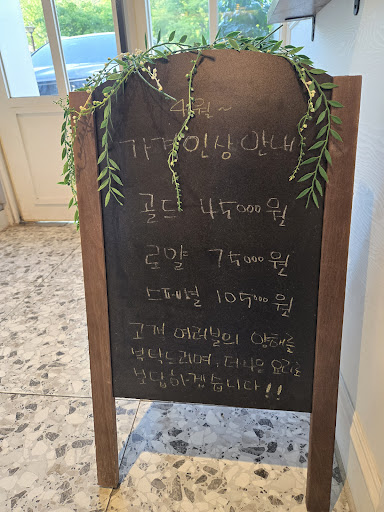 4월~
가격인상안내
골드 45000원
로얄 75000원
스페셜 105000원
고객 여러분의 양해를
부탁드리며, 더 나은 요리로
보답하겠습니다!!